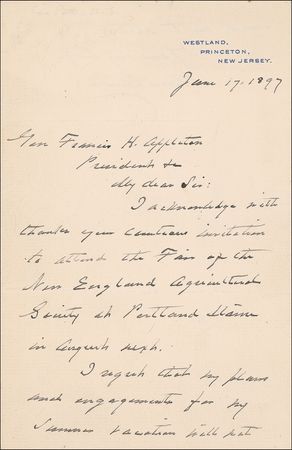 WESTLAND,
PRINCETON,
NEW JERSEY.
June 17. 1897
Gen Francis H. Appleton
President &c
My dear Sir:
I acknowledge with
thanks your courteous invitation
to attend the Fair of the
New England Agricultural
Society at Portland Maine
in August next.
I regret that my plans
and engagements for my
Summer vacation will not